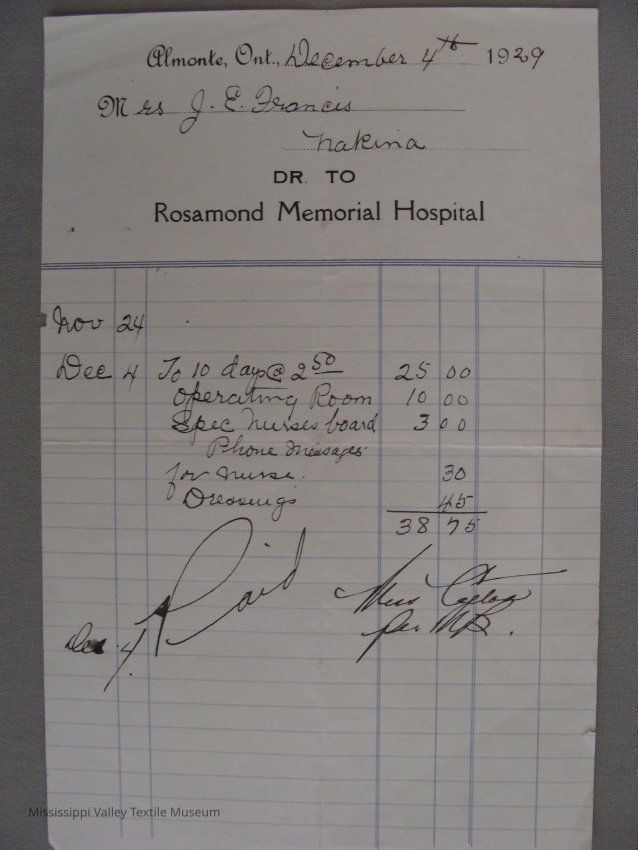 Almonte, Ont., December 4th 1929
Mrs J. E. Francis
Nakina
DR. TO
Rosamond Memorial Hospital
Nov 24
Dec 4 To 10 days @ 2 50 25 00
Operating Room 10 00
Spec Nurses board 3 00
Phone messages
for nurse. 30
Dressings 45
38 75
Paid
Dec 4.
Miss
Per
Mississippi Valley Textile Museum